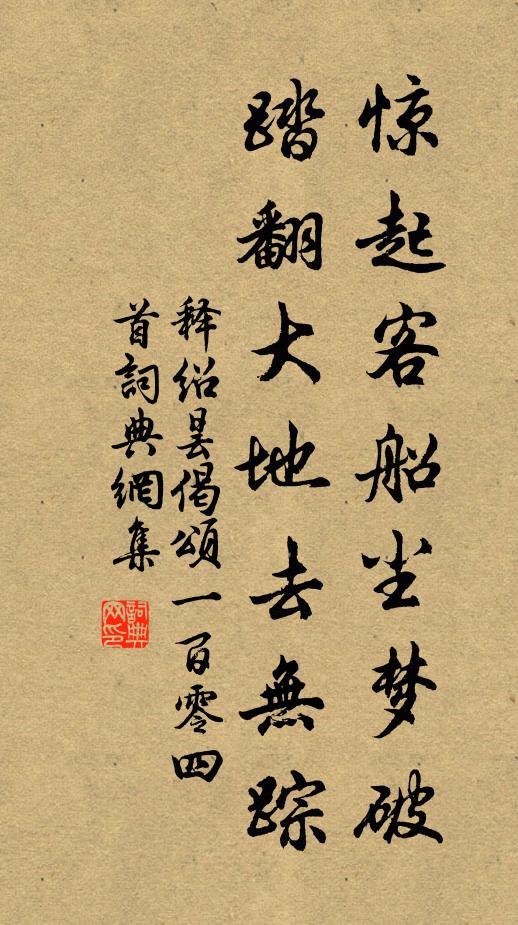 惊起客船尘梦破
踏翻大地去無踪
释绍昙偈頌一百零四
首詞典網集
詞典
网印